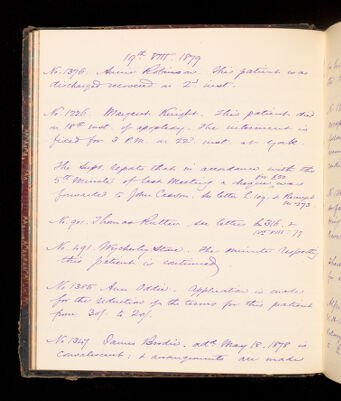 19th VIII. 1879
No. 1376. Annie Robinson. This patient was
discharged recovered on 2d inst.
No. 1226. Margaret Knight. This patient died
on 18th inst. of apoplexy. The interment is
fixed for 3 P.M. on 22d inst. at York.
The Supt. reports that in accordance with the
5th Minute of last Meeting a cheque for £50 was
forwarded to John Ceaton. See letter &
No. 901. Thomas Rutter see letters &
VIII. 79
No. 491. The minute respecting
this patient is continued
No. 1305. Ann Odlie. Application is made
for the reduction of the terms for this patient
from 30/- to 20/-.
No. 1347. James Brodie. adtd. May 18. 1878 is
Convalescent: & arrangements are made